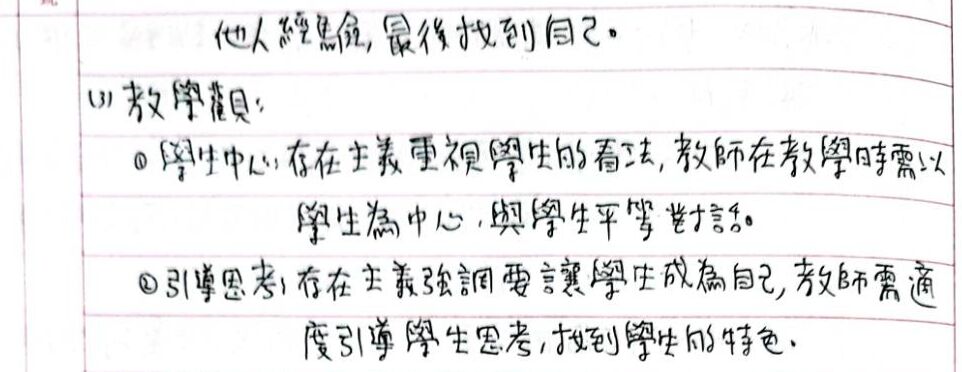 他人經驗,最後找到自己。
(3) 教學觀:
① 學生中心:存在主義重視學生的看法,教師在教學時需以
學生為中心,與學生平等對話。
② 引導思考:存在主義強調要讓學生成為自己,教師需適
度引導學生思考,找到學生的特色.